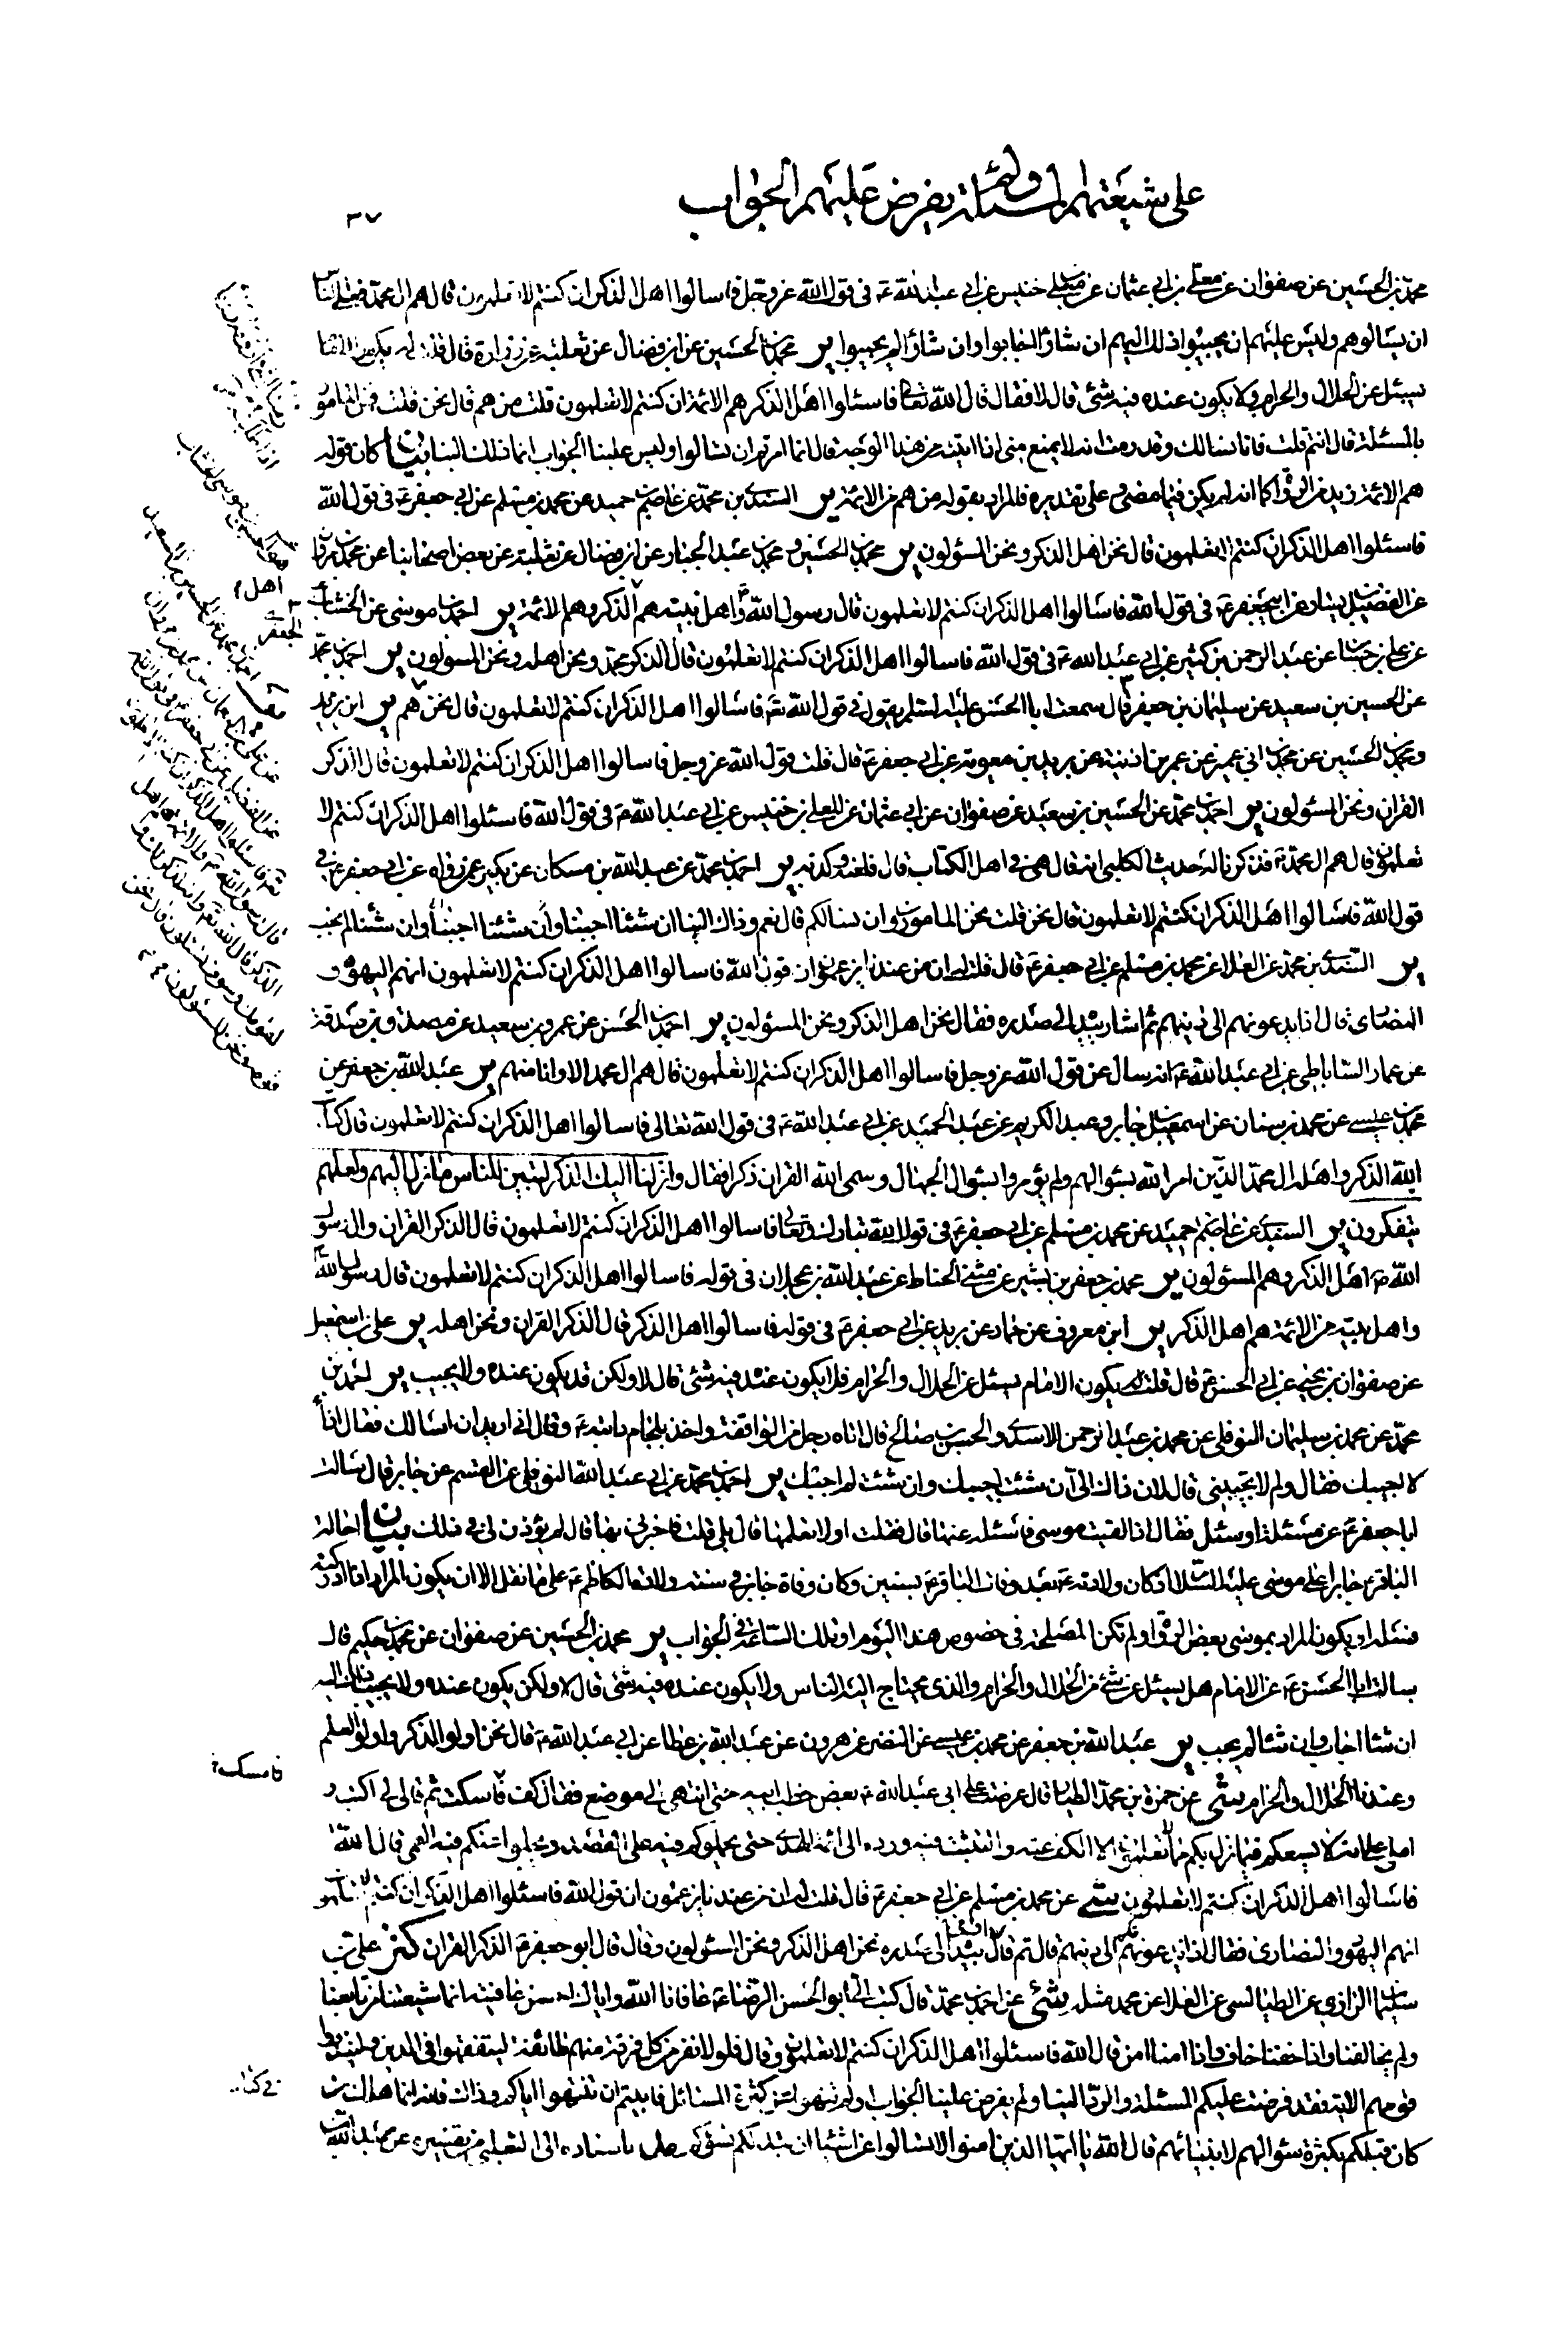 على شيعتهم المسئلة ولم يفرض عليهم الجواب
٣٧
محمد بن الحسين عن صفوان عن معلى بن ابى عثمان عن معلى بن خنيس عن ابى عبد الله ع فى قول الله عز وجل فاسالوا اهل الذكر ان كنتم لا تعلمون قال هم ال محمد فعلى الناس
ان يسالوهم وليس عليهم ان يجيبوا ذلك اليهم ان شاؤا اجابوا وان شاؤا لم يجيبوا ير محمد بن الحسين عن ابن فضال عن ثعلبة عن زرارة قال قلت له يكون الامام
يسئل عن الحلال والحرام ولا يكون عنده فيه شئ قال لا فقال قال الله تعالى فاسئلوا اهل الذكر هم الائمة ان كنتم لا تعلمون قلت من هم قال نحن قلت فمن المامور
بالمسئلة قال انتم قلت فانا نسالك وقد رمت انه لا يمنع منى اذا اتيته من هذا الوجه قال انما امرتم ان تسالوا وليس علينا الجواب انما ذلك الينا بيان كان قوله
هم الائمة زيد من الرواة كما انه لم يكن فيما مضى وعلى تقديره فالمراد بقوله من هم من الائمة ير السندى بن محمد عن عاصم بن حميد عن محمد بن مسلم عن ابى جعفر ع فى قول الله
فاسئلوا اهل الذكر ان كنتم لا تعلمون قال نحن اهل الذكر ونحن المسؤلون ير محمد بن الحسين ومحمد بن عبد الجبار عن ابن فضال عن ثعلبة عن بعض اصحابنا عن محمد بن مروان
عن الفضيل بن يسار عن ابى جعفر ع فى قول الله فاسالوا اهل الذكر ان كنتم لا تعلمون قال رسول الله ص واهل بيته هم الذكر وهم الائمة ير احمد بن موسى عن الخشاب
عن على بن حسان عن عبد الرحمن بن كثير عن ابى عبد الله ع فى قول الله فاسالوا اهل الذكر ان كنتم لا تعلمون قال الذكر محمد ونحن اهله ونحن المسؤلون ير احمد بن محمد
عن الحسين بن سعيد عن سليمان بن جعفر قال سمعت ابا الحسن عليه السلم يقول فى قول الله تع فاسالوا اهل الذكر ان كنتم لا تعلمون قال نحن هم ير ابن يزيد
ومحمد بن الحسين عن محمد بن ابى عمير عن عمر بن اذينة عن بريد بن معوية عن ابى جعفر ع قال قلت قول الله عز وجل فاسالوا اهل الذكر ان كنتم لا تعلمون قال الذكر
القران ونحن المسؤلون ير احمد بن محمد عن الحسين بن سعيد عن صفوان عن ابى عثمان عن المعلى بن خنيس عن ابى عبد الله ع فى قول الله فاسئلوا اهل الذكر ان كنتم لا
تعلمون قال هم ال محمد ص فذكرنا له حديث الكلبى انه قال هى فى اهل الكتاب قال فلعنه وكذبه ير احمد بن محمد عن عبد الله بن مسكان عن بكير عمن رواه عن ابى جعفر ع فى
قول الله فاسالوا اهل الذكر ان كنتم لا تعلمون قال نحن قلت نحن المامورون ان نسالكم قال نعم وذاك الينا ان شئنا اجبنا وان شئنا لم نجب
ير السندى بن محمد عن العلا عن محمد بن مسلم عن ابى جعفر ع قال قلت له ان من عندنا يزعمون ان قول الله فاسالوا اهل الذكر ان كنتم لا تعلمون انهم اليهود و
النصارى قال اذا يدعونهم الى دينهم ثم اشار بيده الى صدره فقال نحن اهل الذكر ونحن المسؤلون ير احمد بن الحسن عن عمرو بن سعيد عن مصدق بن صدقة
عن عمار الساباطى عن ابى عبد الله ع انه سال عن قول الله عز وجل فاسالوا اهل الذكر ان كنتم لا تعلمون قال هم ال محمد الا وانا منهم ير عبد الله بن جعفر عن
محمد بن عيسى عن محمد بن سنان عن اسمعيل بن جابر وعبد الكريم عن عبد الحميد عن ابى عبد الله ع فى قول الله تعالى فاسالوا اهل الذكر ان كنتم لا تعلمون قال كتاب
الله الذكر واهله ال محمد الذين امر الله بسؤالهم ولم يؤمروا بسؤال الجهال وسمى الله القران ذكرا فقال وانزلنا اليك الذكر لتبين للناس ما نزل اليهم ولعلهم
يتفكرون ير السندى عن عاصم بن حميد عن محمد بن مسلم عن ابى جعفر ع فى قول الله تبارك وتعالى فاسالوا اهل الذكر ان كنتم لا تعلمون قال الذكر القران وال رسول
الله ص اهل الذكر وهم المسئولون ير محمد بن جعفر بن بشير عن مثنى الحناط عن عبد الله بن عجلان فى قوله فاسالوا اهل الذكر ان كنتم لا تعلمون قال رسول الله ص
واهل بيته من الائمة هم اهل الذكر ير ابن معروف عن حماد عن بريد عن ابى جعفر ع فى قوله فاسالوا اهل الذكر قال الذكر القران ونحن اهله ير على بن اسمعيل
عن صفوان بن يحيى عن ابى الحسن ع قال قلت له يكون الامام يسئل عن الحلال والحرام فلا يكون عنده فيه شئ قال لا ولكن قد يكون عنده ولا يجيب ير احمد بن
محمد عن محمد بن سليمان النوفلى عن محمد بن عبد الرحمن الاسدى والحسن بن صالح قال اتاه رجل من الواقفة واخذ بلجام دابته ع وقال انى اريد ان اسالك فقال اذا
لا اجيبك فقال ولم لا تجيبنى قال لان ذاك الى ان شئت اجيبك وان شئت لم اجبك ير احمد بن محمد عن ابى عبد الله النوفلى عن القسم عن جابر قال سالت
ابا جعفر ع عن مسئلة او سئل فقال اذا لقيت موسى فاسئله عنها قال فقلت او لا تعلمها قال بلى قلت فاخبرنى بها قال لم يؤذن لى فى ذلك بيان احالة
الباقر ع جابرا على موسى عليه السلا اذ كان ولادته ع بعد وفات الباقر ع بسنين وكان وفاة جابر فى سنة ولادة الكاظم ع على ما نقل الا ان يكون المراد اذا ادركته
فسئله او يكون المراد بموسى بعض الرواة او لم تكن المصلحة فى خصوص هذا اليوم او تلك الساعة فى الجواب ير محمد بن الحسين عن صفوان عن محمد بن حكيم قال
سالت ابا الحسن ع عن الامام هل يسئل عن شئ من الحلال والحرام والذى يحتاج اليه الناس ولا يكون عنده فيه شئ قال لا ولكن يكون عنده ولا يجيب ذاك اليه
ان شاء اجاب وان شاء لم يجب ير عبد الله بن جعفر عن محمد بن عيسى عن النضر عن هرون عن عبد الله بن عطا عن ابى عبد الله ع قال نحن اولو الذكر واولو العلم
وعندنا الحلال والحرام شى عن حمزة بن محمد الطيار قال عرضت على ابى عبد الله ع بعض خطب ابيه حتى انتهى الى موضع فقال كف فاسكت ثم قال لى اكتب و
املى على انه لا يسعكم فيما نزل بكم مما لا تعلمون الا الكف عنه والتثبت فيه ورده الى ائمة الهدى حتى يحملوكم فيه على القصد ويجلوا عنكم فيه العمى قال الله
فاسالوا اهل الذكر ان كنتم لا تعلمون شى عن محمد بن مسلم عن ابى جعفر ع قال قلت له ان من عندنا يزعمون ان قول الله فاسئلوا اهل الذكر ان كنتم لا تعلمون
انهم اليهود والنصارى فقال اذا يدعونكم الى دينهم قال ثم قال بيده الى صدره نحن اهل الذكر ونحن المسئولون وقال قال ابو جعفر ع الذكر القران كنز على بن
سليمان الرازى عن الطيالسى عن العلا عن محمد مثله شى عن احمد بن محمد قال كتب الى ابو الحسن الرضا ع عافانا الله واياك احسن عافية انما شيعتنا من تابعنا
ولم يخالفنا واذا خفنا خاف واذا امنا امن قال الله فاسئلوا اهل الذكر ان كنتم لا تعلمون وقال فلولا نفر من كل فرقة منهم طائفة ليتفقهوا فى الدين ولينذروا
قومهم الاية فقد فرضت عليكم المسئلة والرد الينا ولم يفرض علينا الجواب اولم تنهوا عن كثرة المسائل فابيتم ان تنتهوا اياكم وذاك فانه انما هلك من
كان قبلكم بكثرة سؤالهم لانبيائهم قال الله يا ايها الذين امنوا لا تسالوا عن اشياء ان تبد لكم تسؤكم باسناده الى الثعلبى من تفسيره عن عبد الله
اهل
الجعفرى
فامسكت